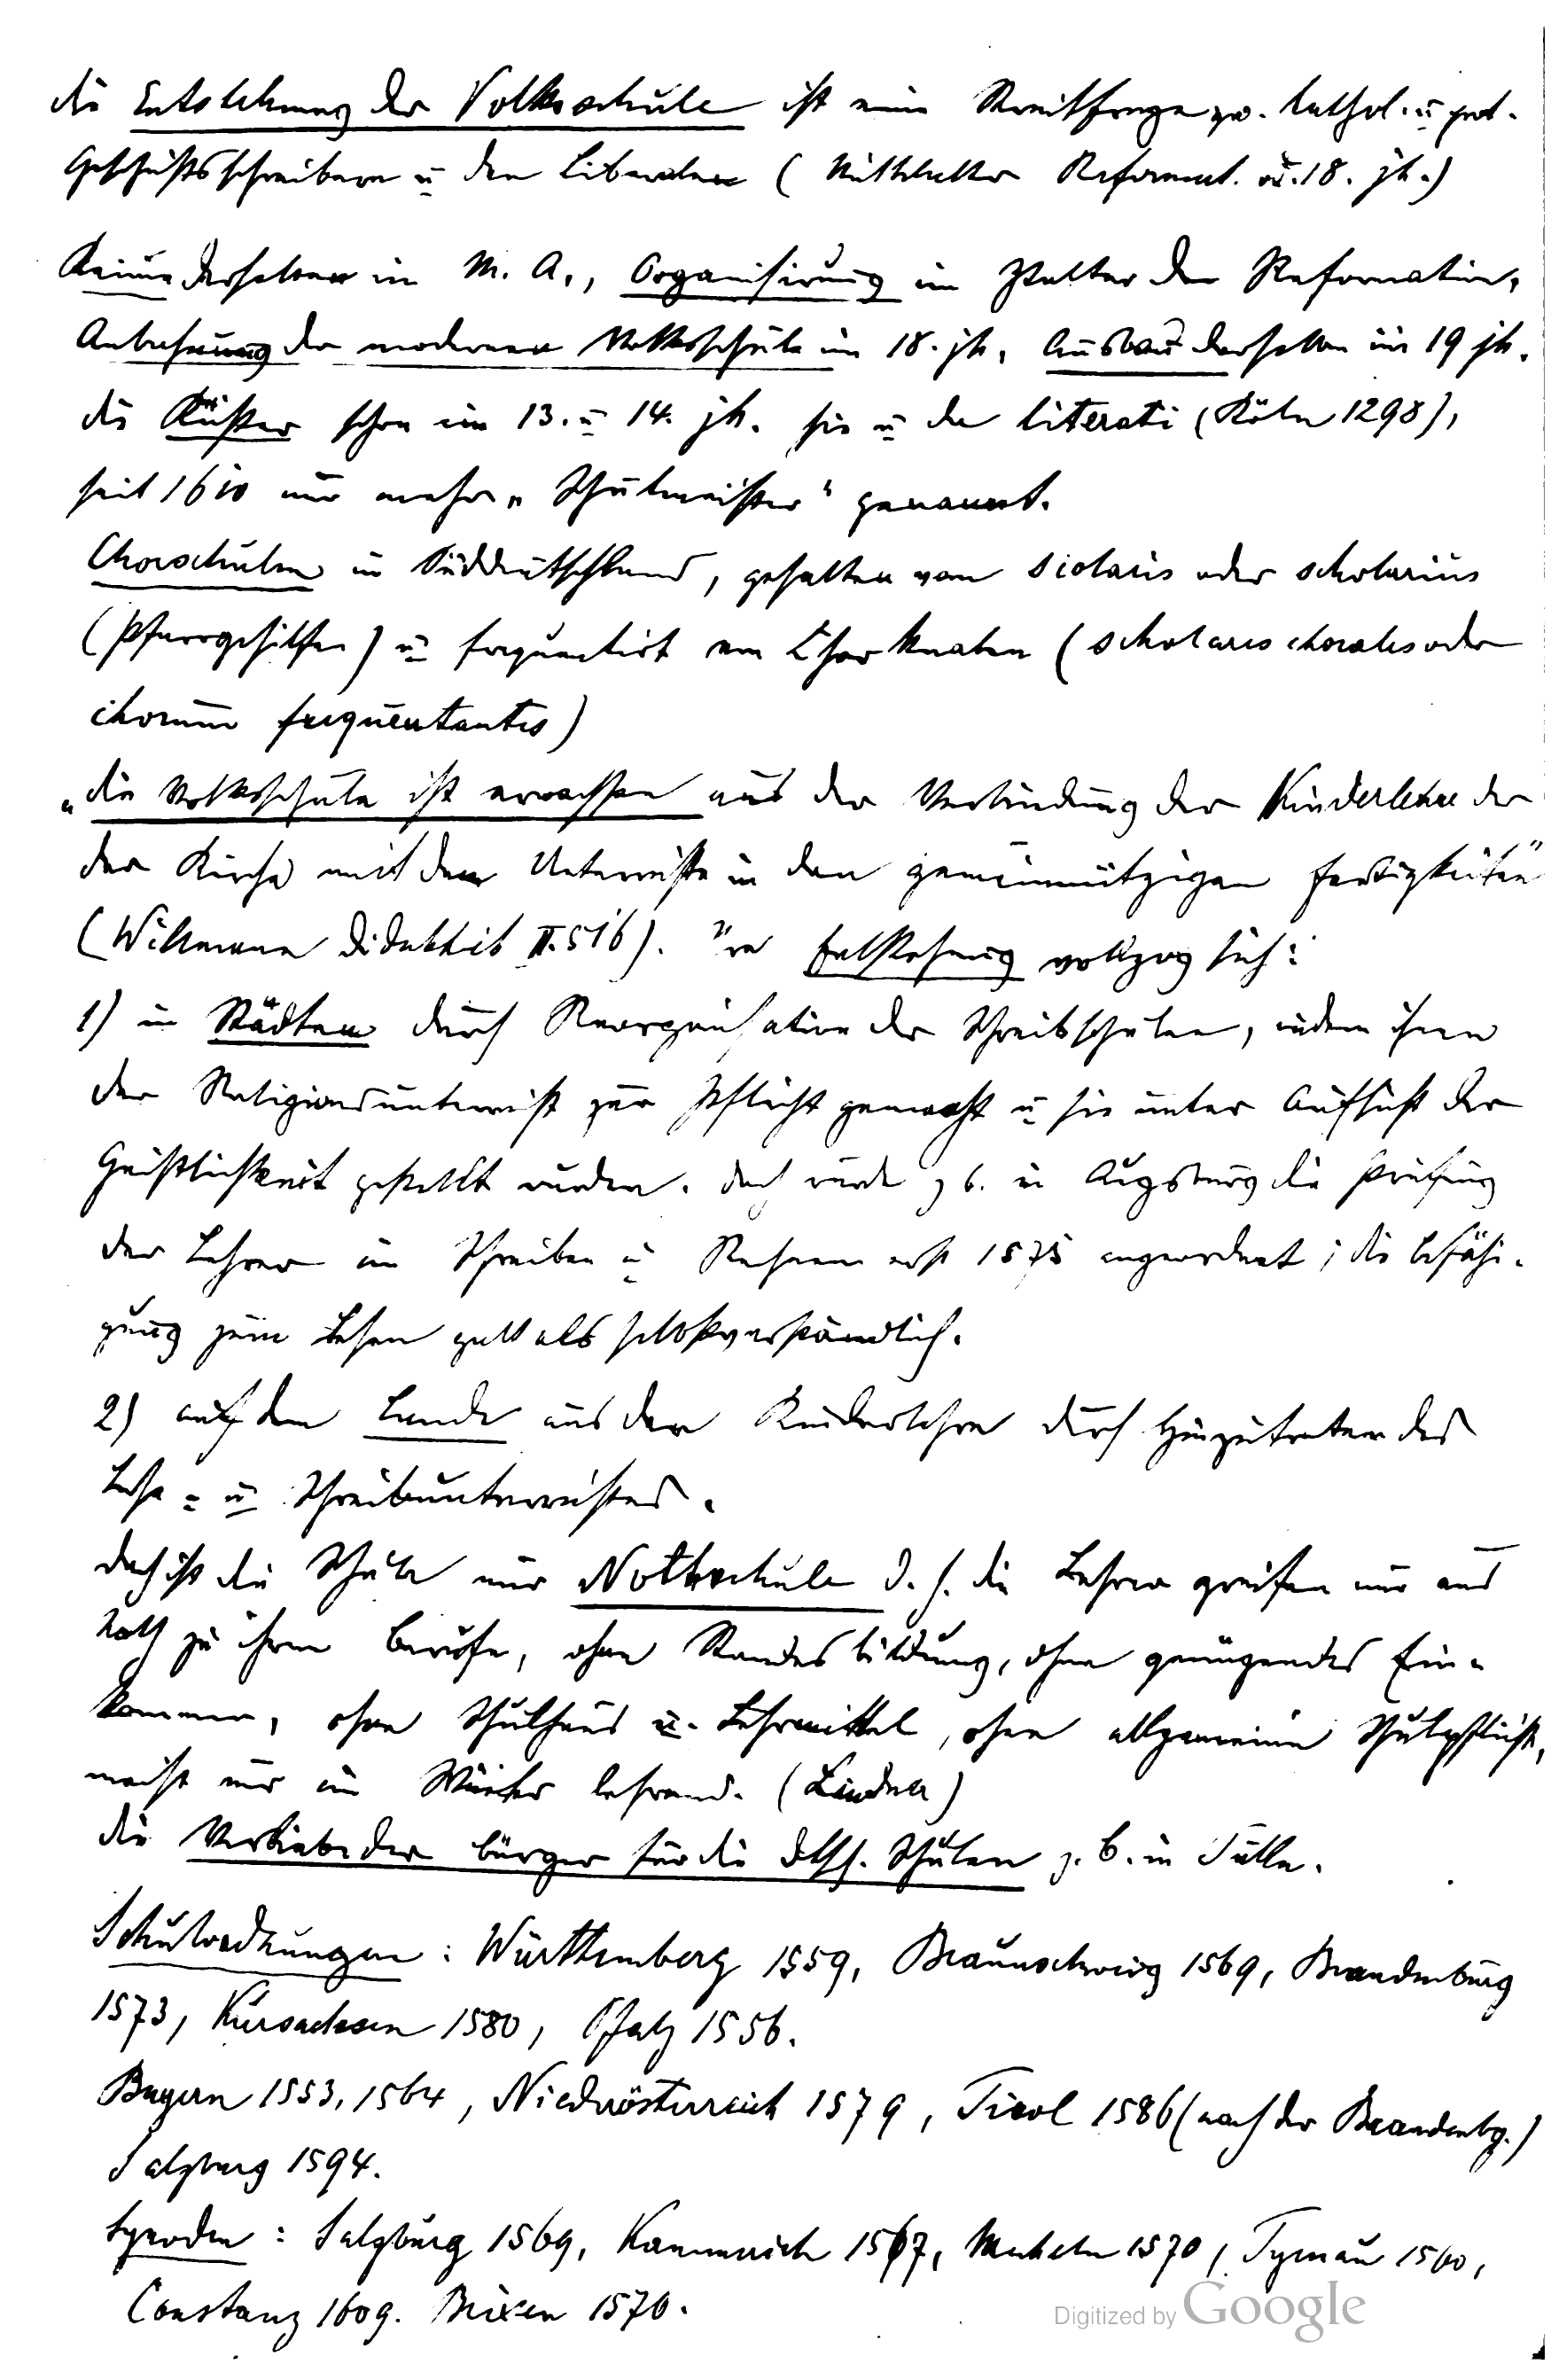 die Entstehung der Volksschule ist eine Streitfrage zw. kathol. u. prot.
Geschichtsschreibern u den Liberalen ( Mittelalter Reformat. 18. jh.)
Keime derselben im M. A., Organisirung im Zeitalter der Reformation,
Anbahnung der modernen Volksschule im 18. jh., Ausbau derselben im 19 jh.
die Küster schon im 13. u 14. jh. sie u die literati (Köln 1298),
seit 1610 nur mehr „Schulmeister" genannt.
Chorschulen in Süddeutschland, gehalten vom scolaris oder scholarius
(Pfarrgehilfen) u frequentirt von Chorknaben (scholares chorales oder
chorum frequentantes)
„die Volksschule ist erwachsen aus der Verbindung der Kinderlehre der
der Kirche mit dem Unterrichte in den gemeinnützigen Fertigkeiten"
(Willmann Didaktik II. 516). Entstehung vollzog sich:
1) in Städten durch Reorganisation der Schreibschulen, indem ihnen
der Religionsunterricht zur Pflicht gemacht u sie unter Aufsicht der
Geistlichkeit gestellt wurden. doch wurde z b. in Augsburg die Prüfung
der Lehrer im Schreiben u Rechnen erst 1575 angeordnet; die Befähi-
gung zum Lesen galt als selbstverständlich.
2) auf dem Lande aus der Kinderlehre durch Hinzutreten des
Lese- u Schreibunterrichtes.
doch ist die Schule nur Nothschule d. h. die Lehrer greifen nur aus
Noth zu ihrem Berufe, ohne Standesbildung, ohne genügendes Ein-
kommen, ohne Schulhaus u. Lehrmittel, ohne allgemeine Schulpflicht,
meist nur im Winter lehrend. (Lindner)
die Vorliebe der Bürger für die dtsch. Schulen z. B. in Tulln.
Schulordnungen: Württemberg 1559, Braunschweig 1569, Brandenburg
1573, Kursachsen 1580, Pfalz 1556.
Bayern 1553, 1564, Niederösterreich 1579, Tirol 1586 (nach der Brandenbg.)
Salzburg 1594.
Synoden: Salzburg 1569, Kammerich 1567, Mecheln 1570, Tyrnau 1560,
Constanz 1609. Brixen 1570.
Digitized by Google